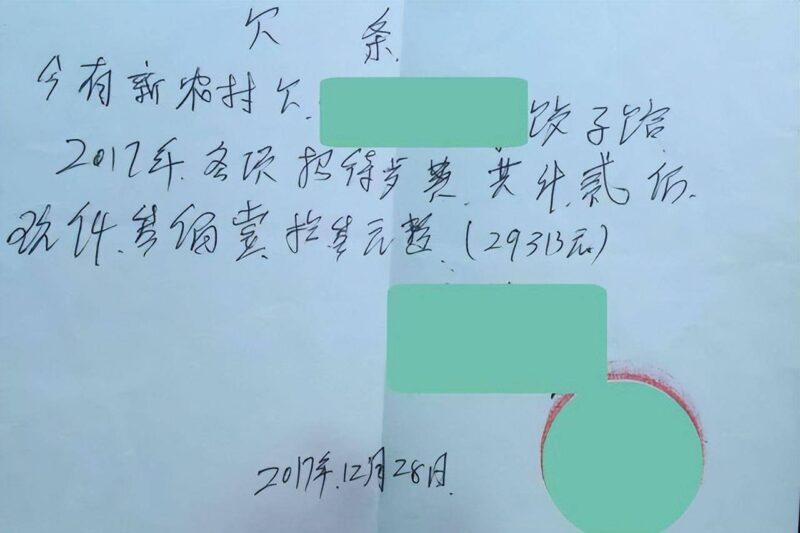 欠 条
今有新农村欠 饺子馆
2017年各项招待费共计贰万
玖仟叁佰壹拾叁元整(29313元)
2017年12月28日